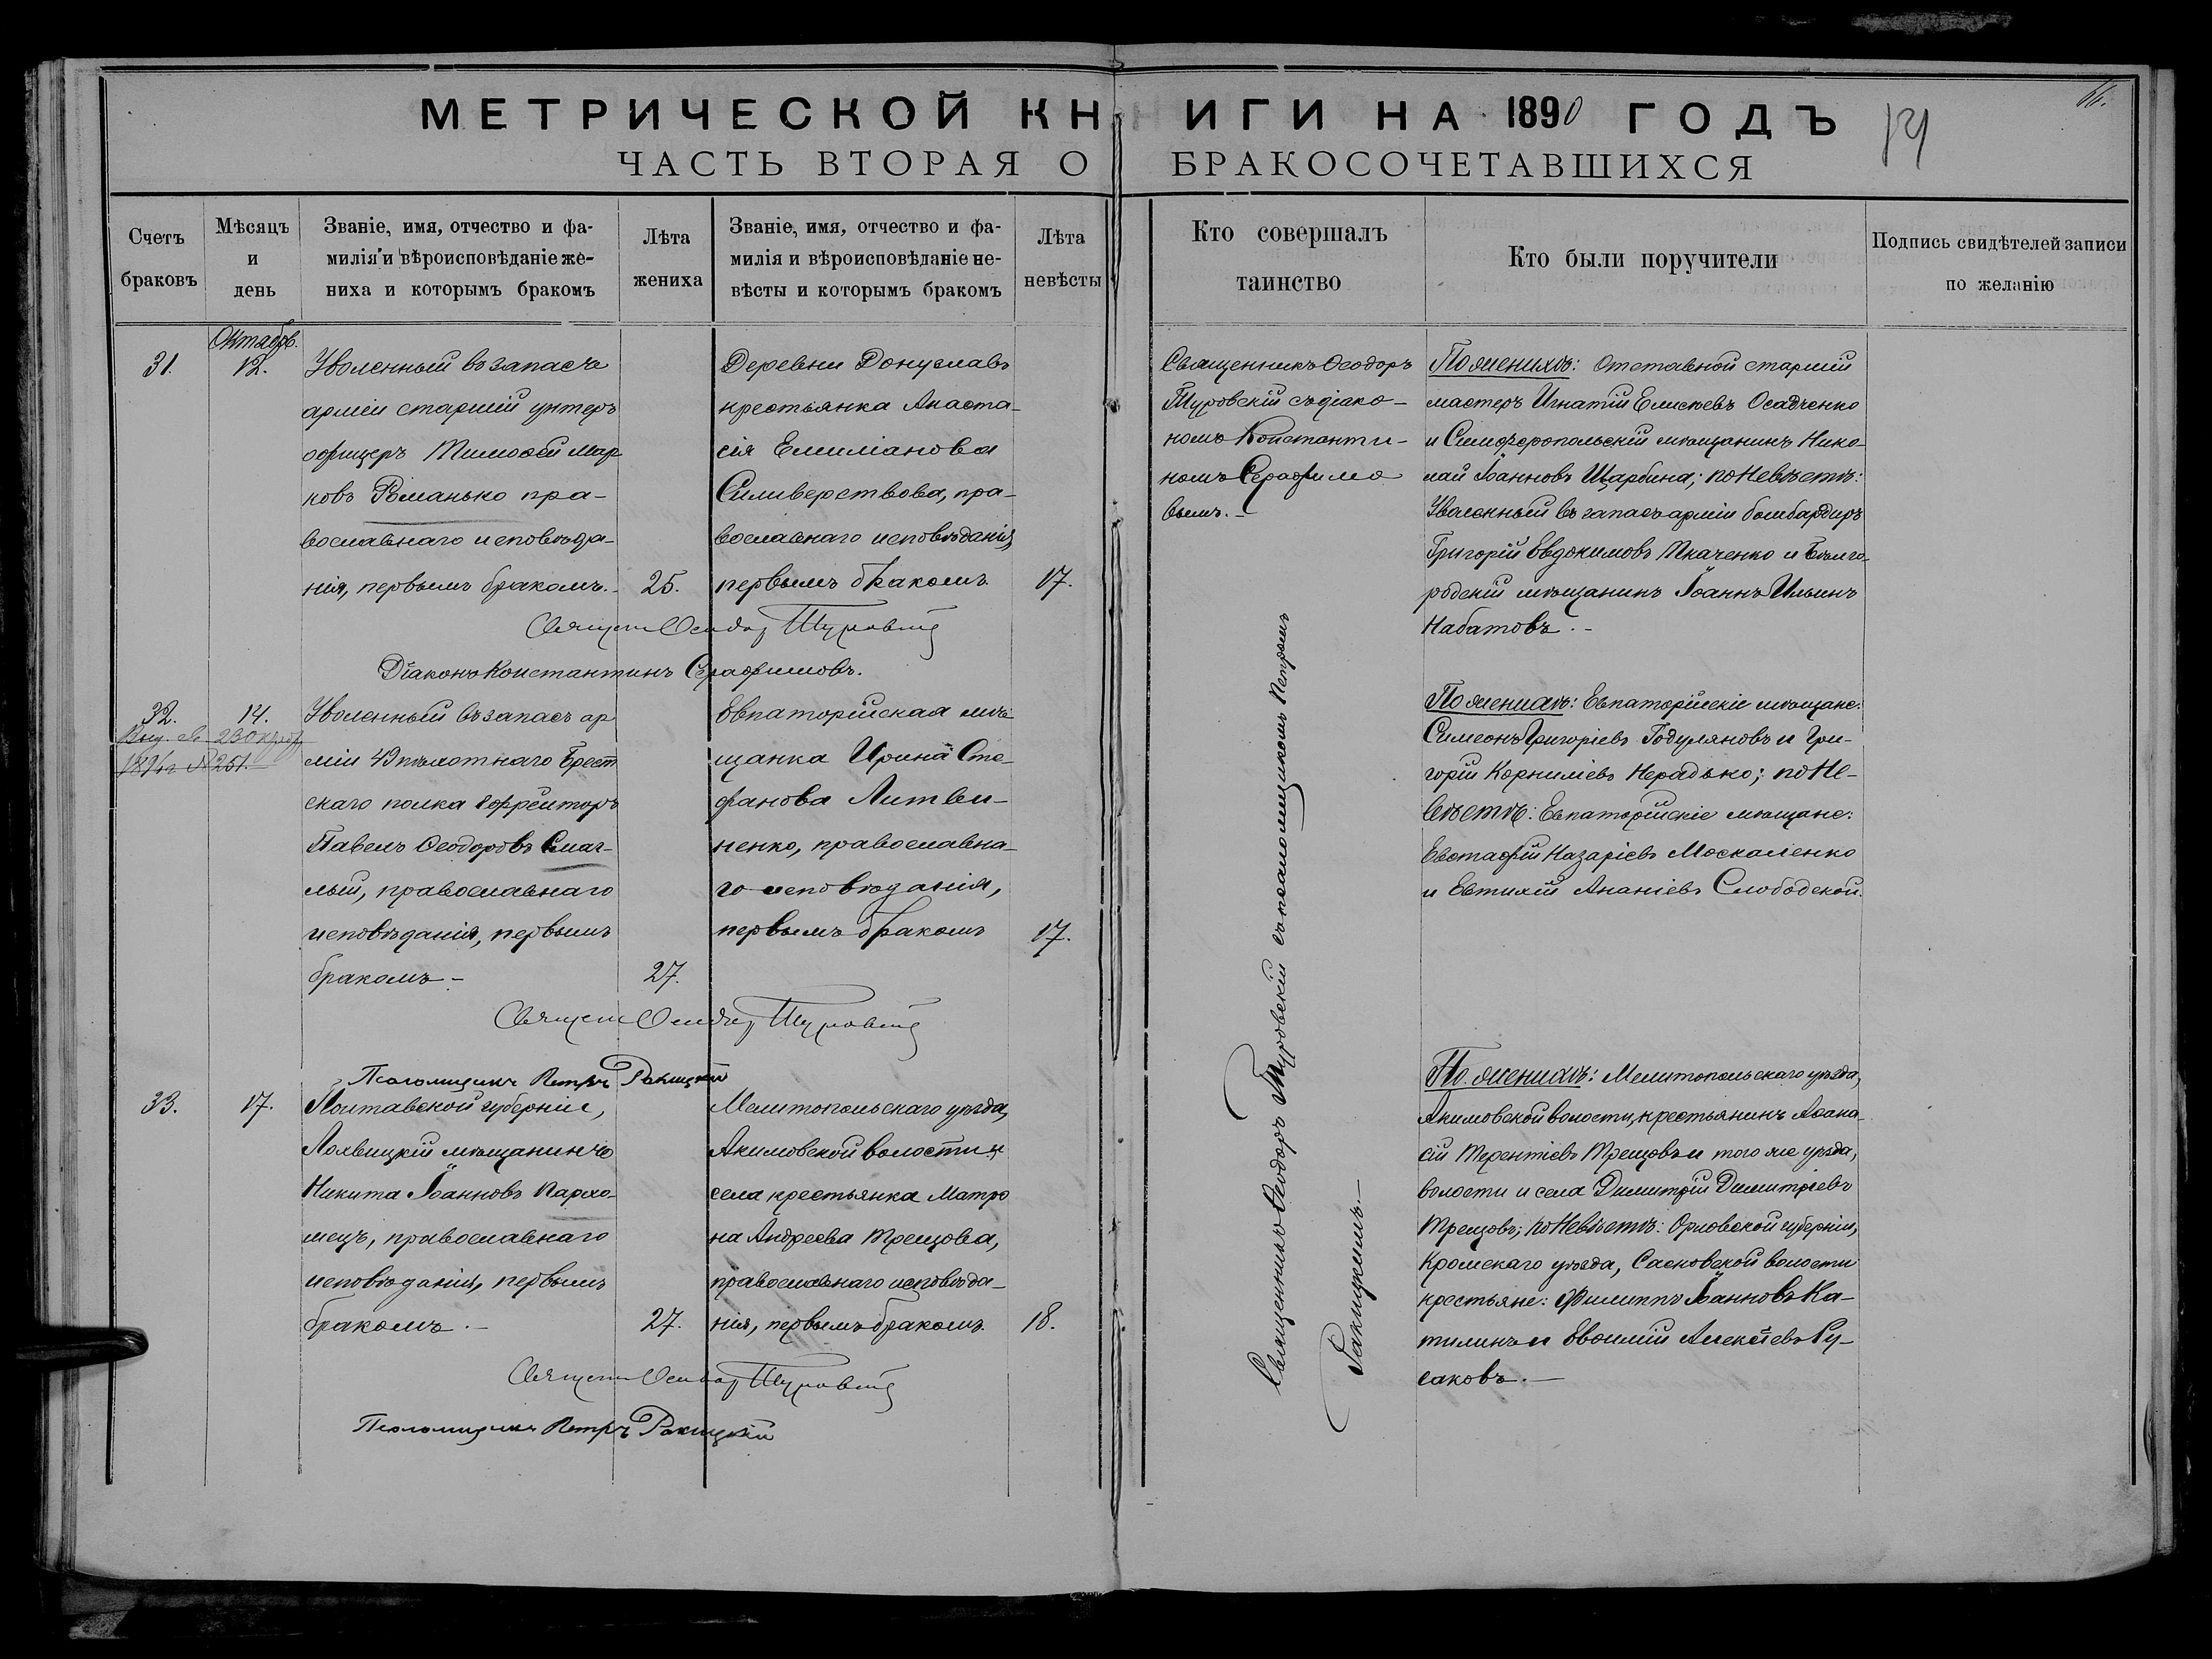 66.
МЕТРИЧЕСКОЙ КНИГИ НА 1890 ГОДЪ
ЧАСТЬ ВТОРАЯ О БРАКОСОЧЕТАВШИХСЯ
Счетъ браковъ
Мѣсяцъ и день
Званіе, имя, отчество и фа-
милія и вѣроисповѣданіе же-
ниха и которымъ бракомъ
Лѣта жениха
Званіе, имя, отчество и фа-
милія и вѣроисповѣданіе не-
вѣсты и которымъ бракомъ
Лѣта невѣсты
Кто совершалъ таинство
Кто были поручители
Подпись свидѣтелей записи
по желанію
Октябрь.
31.
12.
Уволенный въ запасъ
арміи старшій унтеръ
офицеръ Тимоѳей Мар
ковъ Романько пра-
вославнаго исповѣда-
нія, первымъ бракомъ.-
25.
Деревни Донуславъ
крестьянка Анаста-
сія Емиліанова
Силиверствова, пра-
вославнаго исповѣданія,
первымъ бракомъ
17.
Священникъ Ѳеодоръ
Туровскій съ діако-
номъ Константи-
номъ Серафимо
вымъ.-
По женихѣ: Отставной старшій
мастеръ Игнатій Елисѣевъ Осадченко
и Симферопольскій мѣщанинъ Нико-
лай Іоанновъ Щарбина; по Невѣстѣ:
Уволенный въ запасъ арміи бомбардиръ
Григорій Евдокимовъ Ткаченко и Бѣлго-
родскій мѣщанинъ Іоаннъ Ильинъ
Набатовъ.-
Священ Ѳеодор Туровскій
Діаконъ Константинъ Серафимовъ.
32.
14.
1891 г. № 251.
Уволенный въ запасъ ар
міи 49 пѣхотнаго Брест
скаго полка Ефрейторъ
Павелъ Ѳеодоровъ Смаг-
лый, православнаго
исповѣданія, первымъ
бракомъ-
27.
Евпаторійская мѣ-
щанка Ирина Сте-
фанова Литви-
ненко, православна-
го исповѣданія,
первымъ бракомъ
17.
По женихѣ: Евпаторійскіе мѣщане:
Симеонъ Григоріевъ Годуляновъ и Гри-
горій Корниліевъ Нерадько; по Не-
вѣстѣ: Евпаторійскіе мѣщане:
Евстафій Назаріевъ Москаленко
и Евтихій Ананіевъ Слободской.
Священ Ѳеодор Туровскій
Псаломщикъ Петръ Ракицкій
Священникъ Ѳеодоръ Туровскій съ псаломщикомъ Петромъ
Ракицкимъ.-
33.
17.
Полтавской губерніи,
Лохвицкій мѣщанинъ
Никита Іоанновъ Пархо-
мецъ, православнаго
исповѣданія, первымъ
бракомъ.-
27.
Мелитопольскаго уѣзда,
Акимовской волости и
села крестьянка Матро
на Андреева Трещова,
православнаго исповѣда-
нія, первымъ бракомъ.
18.
По женихѣ: Мелитопольскаго уѣзда,
Акимовской волости, крестьянинъ Аѳана-
сій Терентіевъ Трещовъ и того же уѣзда,
волости и села Димитрій Димитріевъ
Трещовъ; по Невѣстѣ: Орловской губерніи,
Кромскаго уѣзда, Сасновской волости
крестьяне: Филиппъ Іоанновъ Ка-
тилинъ и Евѳимій Алексѣевъ Ру-
саковъ.-
Священ Ѳеодор Туровскій
Псаломщикъ Петръ Ракицкій